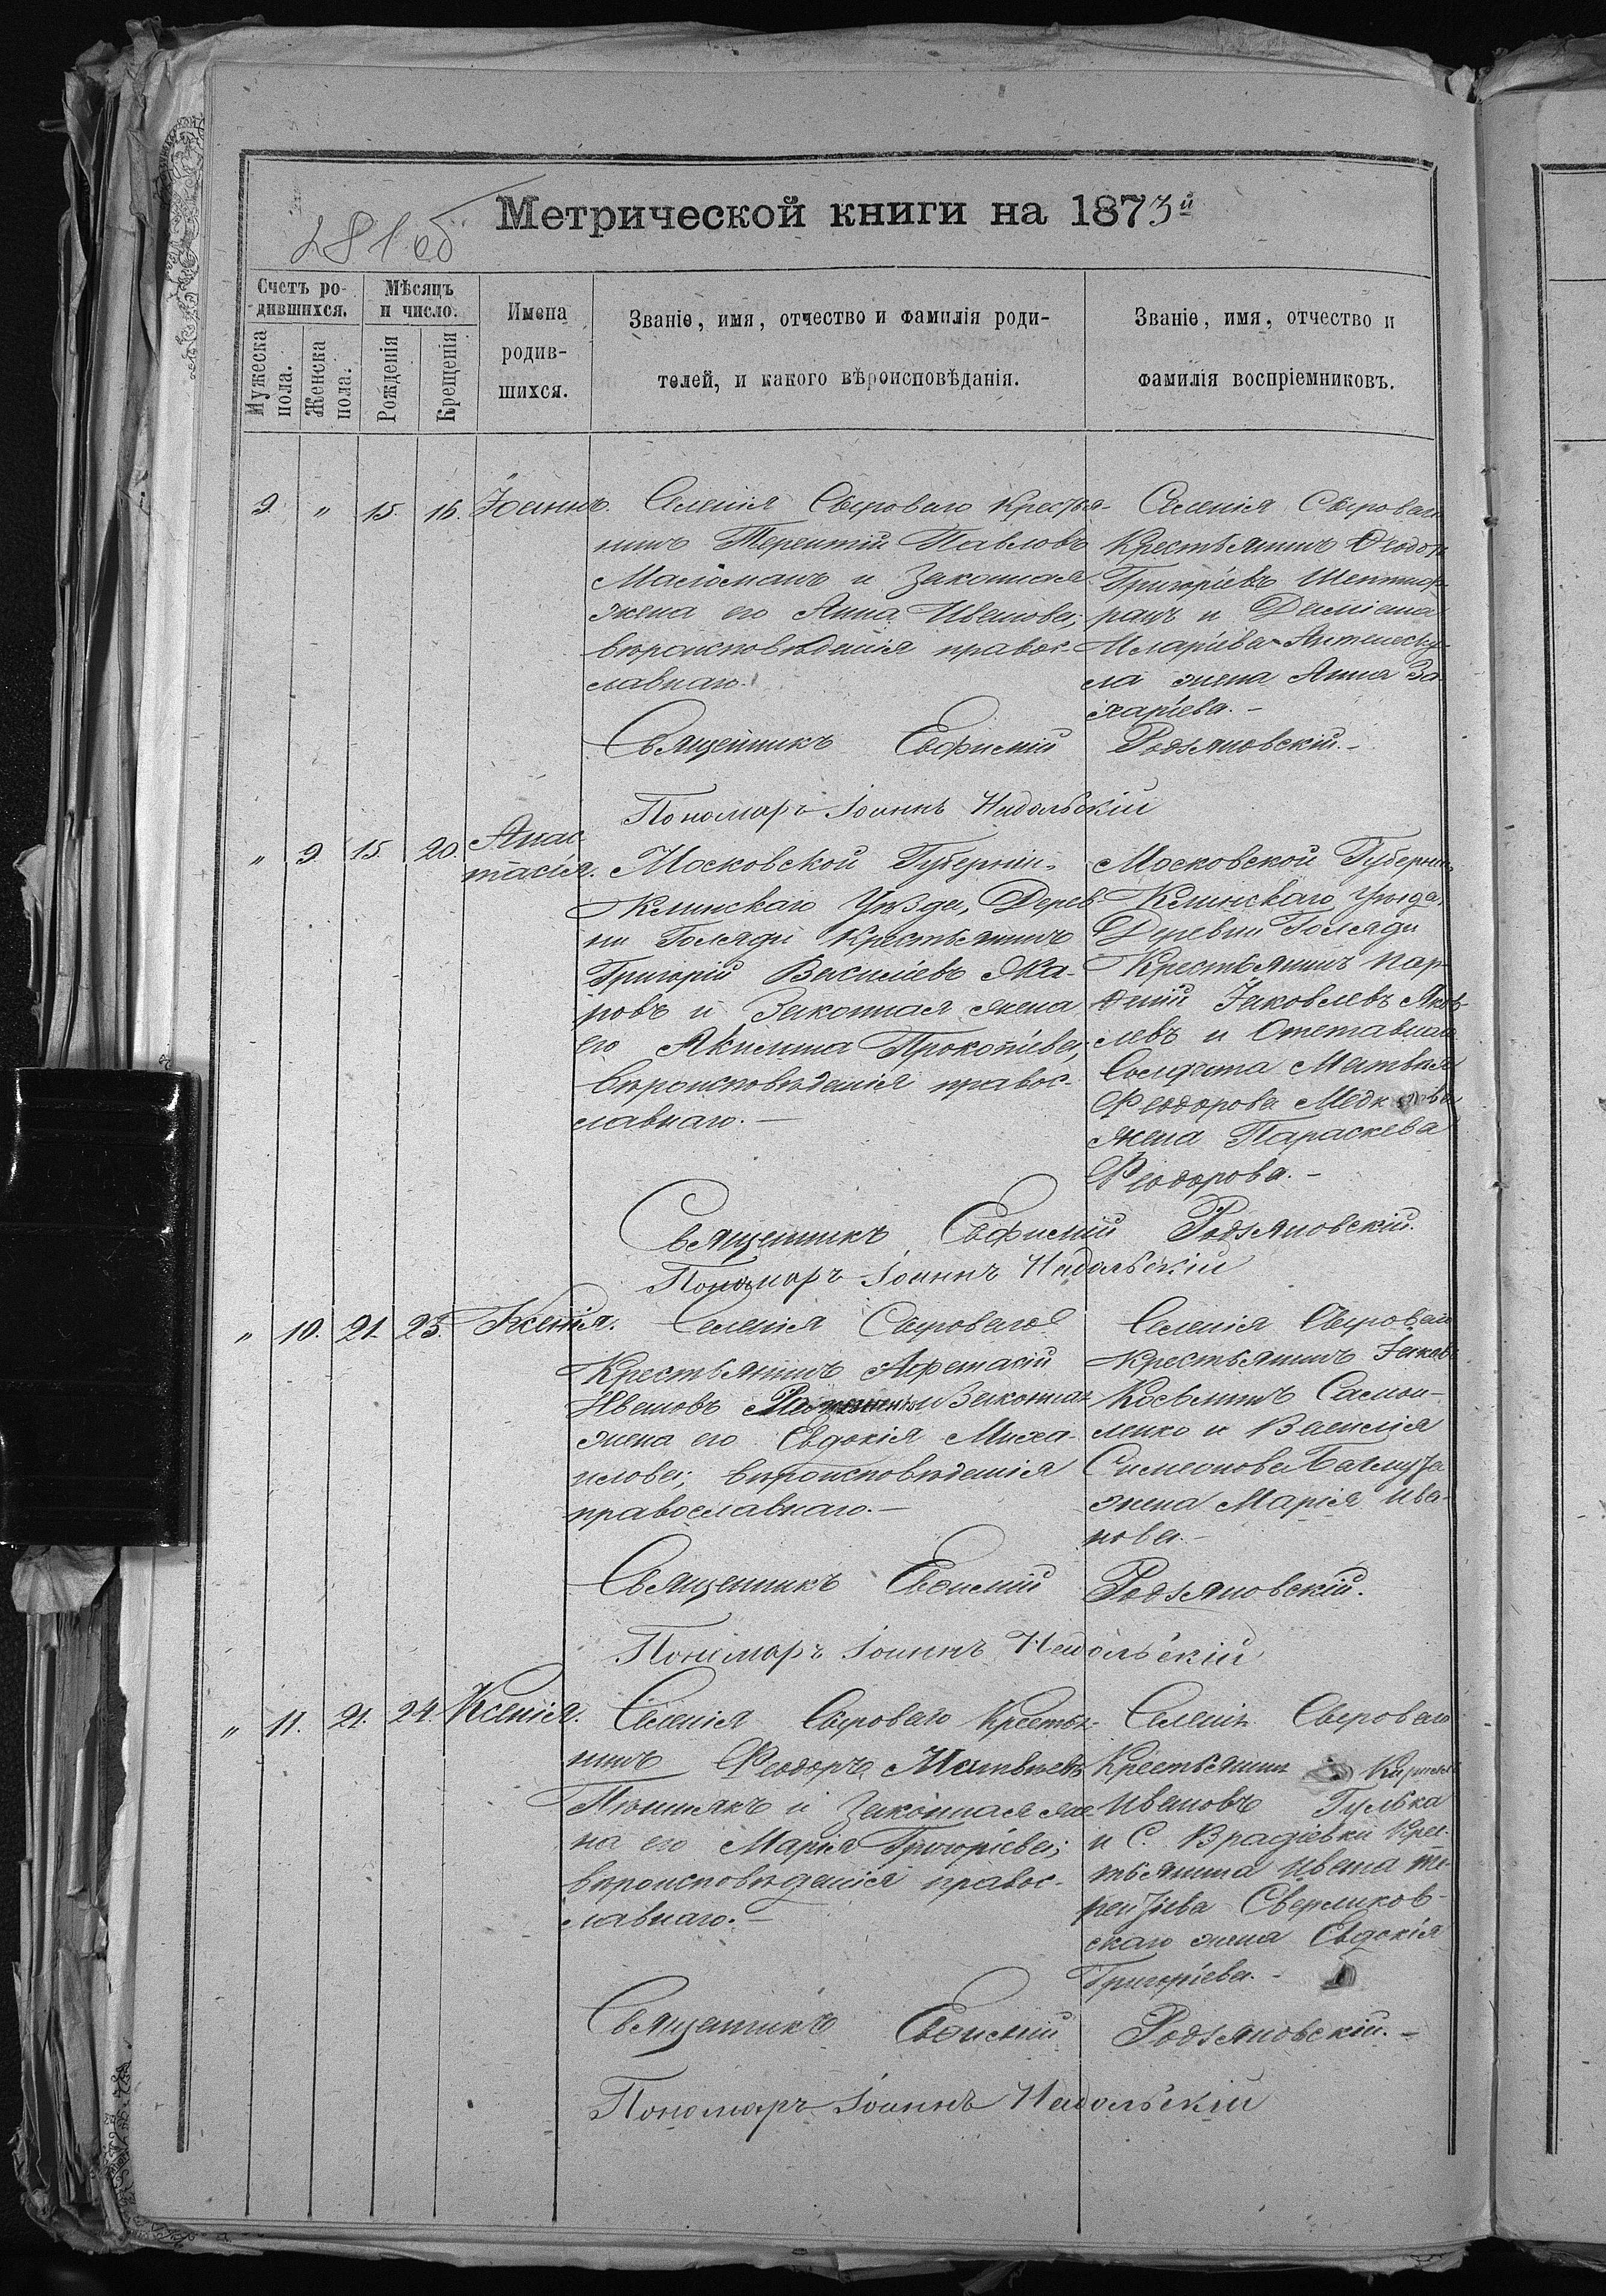 281 об
Метрической книги на 1873й
Счетъ ро-
дившихся.
Мужеска
пола.
Женска
пола.
Мѣсяцъ
и число.
Рожденія
Крещенія
Имена
родив-
шихся.
Званіе, имя, отчество и фамилія роди-
телей, и какого вѣроисповѣданія.
Званіе, имя, отчество и
фамилія воспріемниковъ.
9. " 15. 16. Іоаннъ.
Селенія Сыроваго Крестья-
нинъ Терентій Павловъ
и законная
жена его Анна Иванова;
вѣроисповѣданія правос-
лавнаго.
Селенія Сыроваго
Крестьянинъ Ѳеодоръ
Григоріевъ
и Даміана
Иларіева
жена Анна За
харіева. -
Священникъ Евфимій Родзяновскій. -
Пономарь Іоаннъ Надольскій
" 9. 15. 20. Анас
тасія.
Московской Губерніи,
Клинскаго Уѣзда, Дерев-
ни Голяди Крестьянинъ
Григорій Василіевъ Ака-
ровъ и Законная жена
его Акилина Прокопіева,
вѣроисповѣданія правос-
лавнаго. -
Московской Губерніи,
Клинскаго Уѣзда,
Деревни Голяди
Крестьянинъ Пар-
ѳеній Іаковлевъ Яков-
левъ и Отставнаго
Солдата Матвѣя
Ѳеодорова
жена Параскева
Ѳеодорова. -
Священникъ Евфимій Родзяновскій.
Пономарь Іоаннъ Надольскій
" 10. 21. 23. Ксенія.
Селенія Сыроваго
Крестьянинъ Афанасій
Ивановъ и Законная
жена его Евдокія Миха-
илова; вѣроисповѣданія
православнаго. -
Селенія Сыроваго
Крестьянинъ Іаковъ
Косьминъ Самой-
ленко и Василія
Симеонова
жена Марія Ива-
нова. -
Священникъ Евѳимій Родзяновскій.
Пономарь Іоаннъ Надольскій
" 11. 21. 24. Ксенія.
Селенія Сыроваго Крестья-
нинъ Ѳеодоръ Матвѣевъ
и Законная же-
на его Марія Григоріева;
вѣроисповѣданія правос-
лавнаго. -
Селенія Сыроваго
Крестьянинъ
Ивановъ Гулька
и С. Врадіевки Крес-
тьянина Ивана Те-
рентіева Сверликов-
скаго жена Евдокія
Григоріева. -
Священникъ Евѳимій Родзяновскій. -
Пономарь Іоаннъ Надольскій